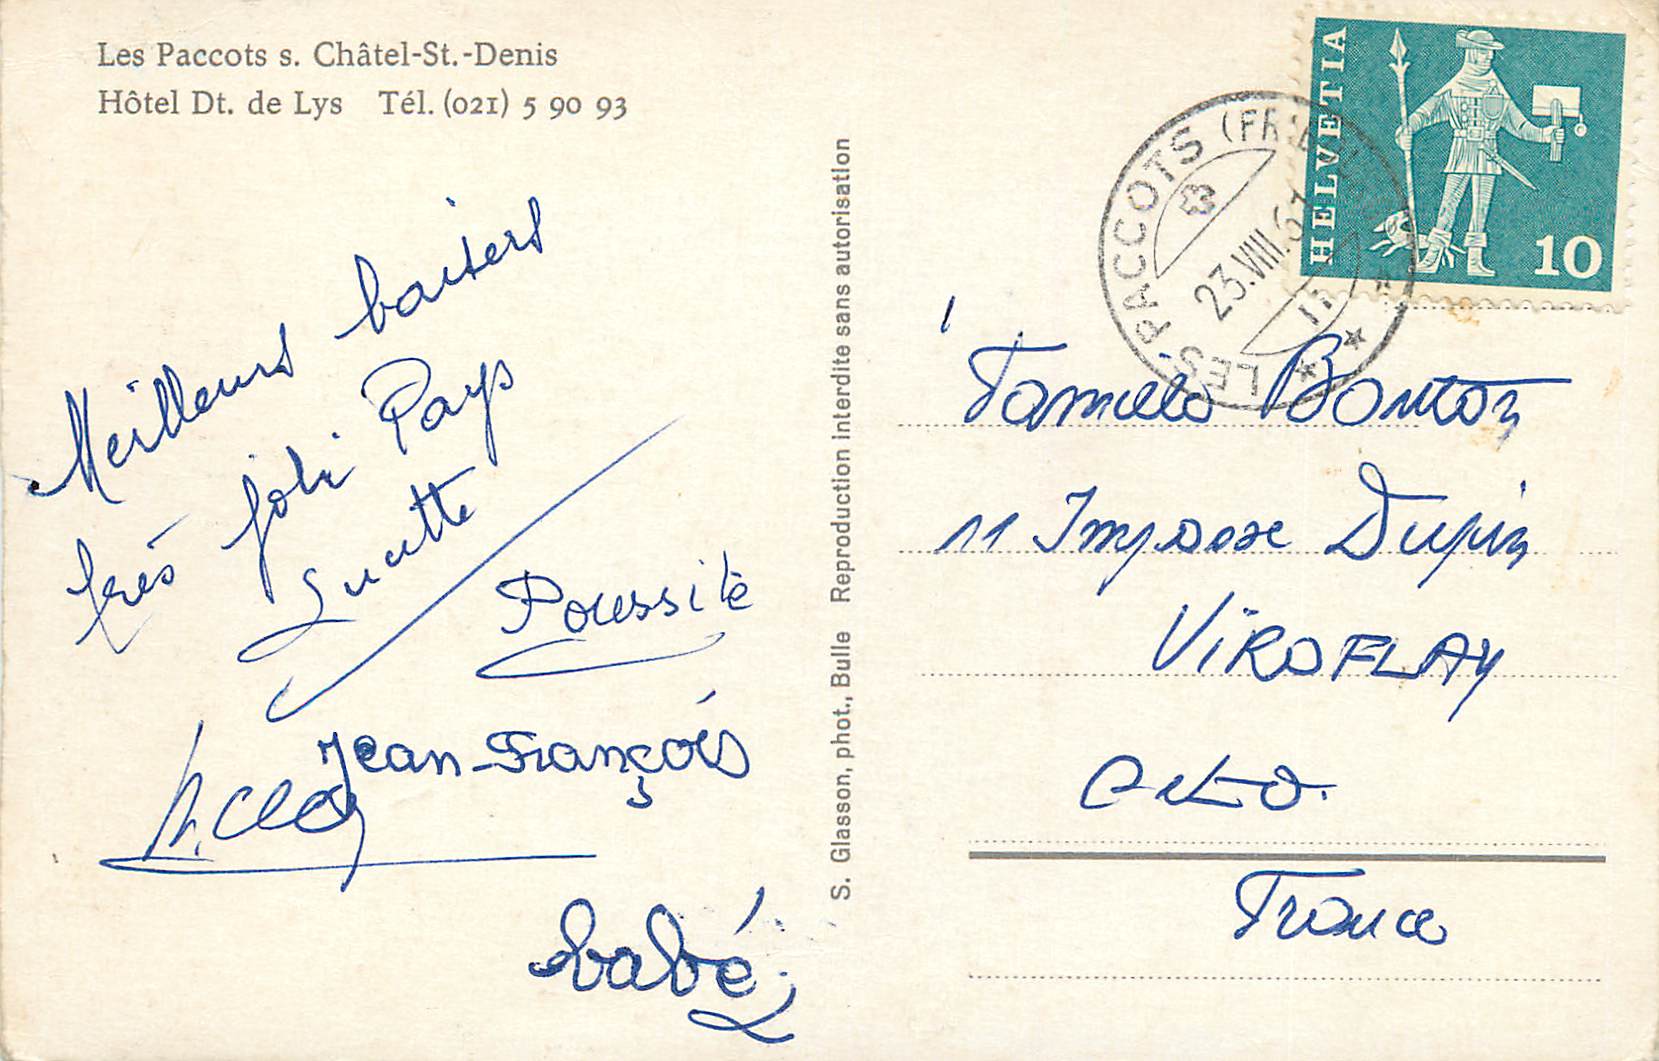 Les Paccots s. Châtel-St.-Denis
Hôtel Dt. de Lys Tél. (021) 5 90 93
Meilleurs baisers
très joli Pays
Poussite
Jean-François
babé
S. Glasson, phot., Bulle Reproduction interdite sans autorisation
HELVETIA
10
LES PACCOTS
23.VIII.61
Famille Bouton
11 Impasse Dupin
VIROFLAY
France